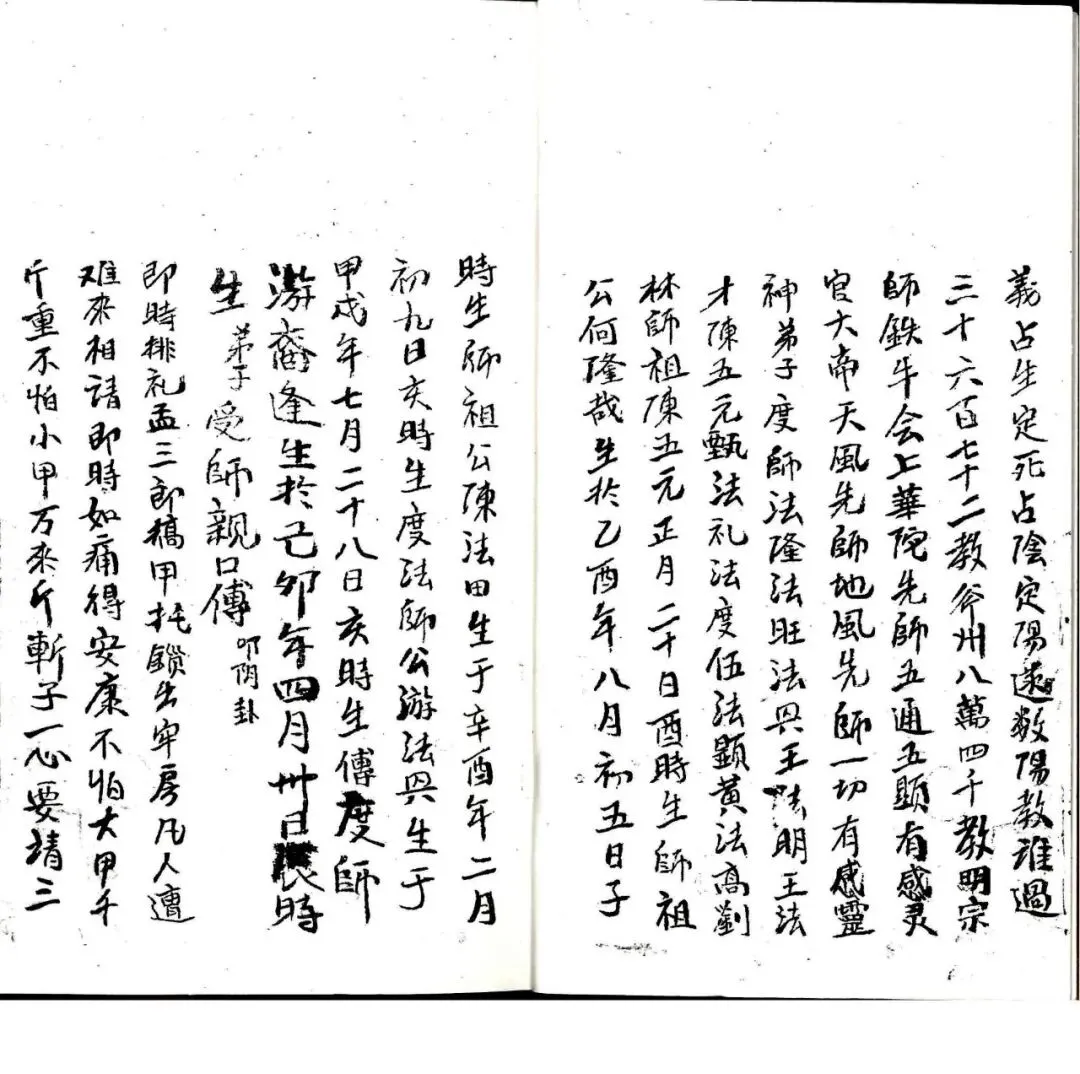 義占生定死占陰定陽遂数陽教誰過
三十六百七十二教斧州八萬四千教明宗
師鉄牛会上華陀先師五通五顕有感灵
官大帝天風先師地風先師一切有感靈
神弟子度師法隆法旺法興王法明王法
才陳五元甄法礼法度伍法顕黃法高劉
林師祖陳五元正月二十日酉時生師祖
公何隆哉生於乙酉年八月初五日子
時生師祖公陳法田生于辛酉年二月
初九日亥時生度法師公游法興生于
甲戌年七月二十八日亥時生傳度師
游裔逢生於己卯年四月卅日辰時
生弟子受師親口傳 叩阴卦
即時排礼孟三郎稿甲托鎖出牢房凡人遭
难來相請即時如痛得安康不怕大甲千
斤重不怕小甲万來斤斬子一心要請三